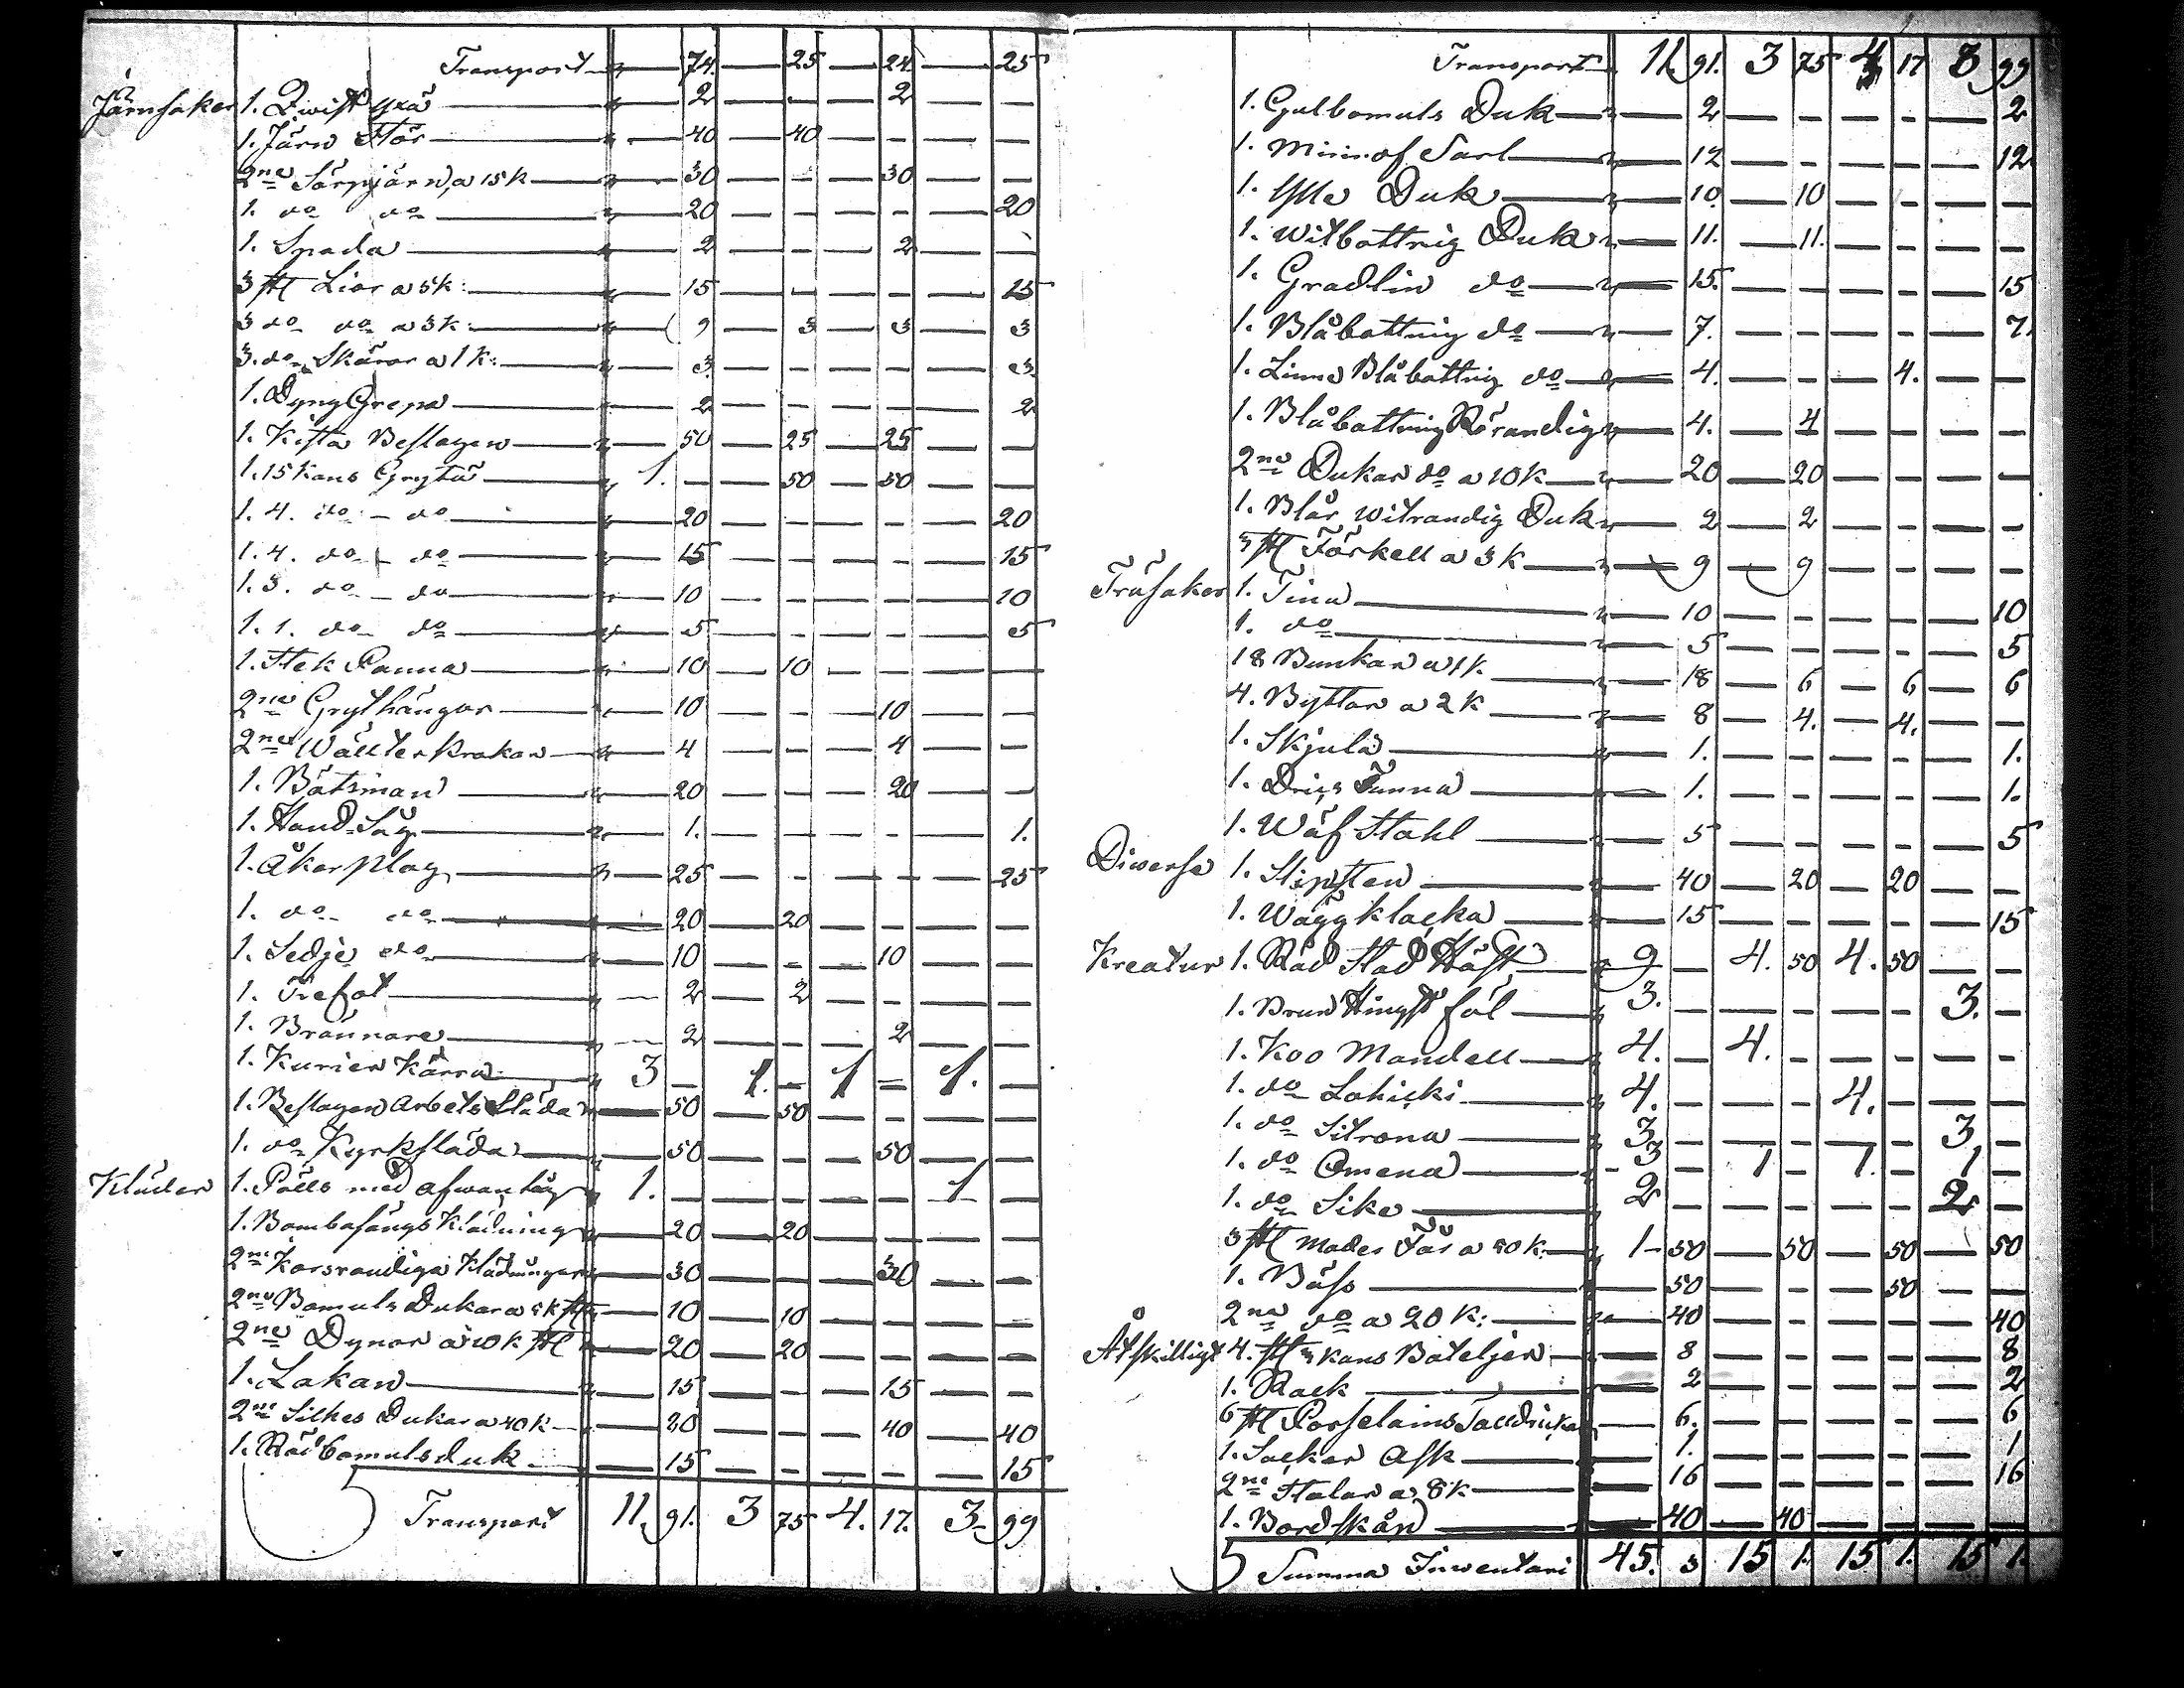 Transport — 74. — 25 — 24. — 25
Järnsaker 1. Qwist yxa — 2 — — — 2 — —
1. Järn Stör — 40 — 40 — — — —
2ne Särpjärn, a 15 k — 30 — — — 30 — —
1. do do — 20 — — — — — 20
1. Spada — 2 — — — 2 — —
3 st Liar a 5 k: — 15 — — — — — 15
3 do do a 3 k: — 9 — 3 — 3 — 3
3. do Skäror a 1 k: — 3 — — — — — 3
1. DyngGrepa — 2 — — — — — 2
1. Kista Beslagen — 50 — 25 — 25 — —
1. 15 Kans Gryta 1. — — 50 — 50 — —
1. 4. do — do — 20 — — — — — 20
1. 4. do — do — 15 — — — — — 15
1. 3. do — do — 10 — — — — — 10
1. 1. do do — 5 — — — — — 5
1. Stek Panna — 10 — 10 — — — —
2ne Grythängor — 10 — — — 10 — —
2ne Wällterkrokar — 4 — — — 4 — —
1. Båtsman — 20 — — — 20 — —
1. Hand Såg — 1. — — — — — 1.
1. Åkerplog — 25 — — — — — 25
1. do do — 20 — 20 — — — —
1. Sedje do — 10 — — — 10 — —
1. Trefot — 2 — 2 — — — —
1. Brännare — 2 — — — 2 — —
1. Kurier Kärra 3 — 1. — 1 — 1. —
1. Beslagen Arbets Släda — 50 — 50 — — — —
1. do Kyrksläda — 50 — — — 50 — —
Kläder 1. Pälls med 1. — — — — — 1 —
1. Bombasängs Klädning — 20 — 20 — — — —
2ne Korsrandiga Klädningar — 30 — — — 30 — —
2ne Bomuls Dukar a 5 k st — 10 — 10 — — — —
2ne Dynor a 10 k st — 20 — 20 — — — —
1. Lakan — 15 — — — 15 — —
2ne Silkes Dukar a 40 k — 80 — — — 40 — 40
1. Röd bomulsduk — 15 — — — — — 15
Transport 11. 91. 3 75 4. 17. 3. 99
Transport 11. 91. 3 75 4 17 3 99
1. Gulbomuls Duk — 2 — — — — — 2
1. Sarl — 12 — — — — — 12
1. Ylle Duk — 10 — 10 — — — —
1. Witbottnig Duk — 11. — 11. — — — —
1. Gradlin do — 15. — — — — — 15
1. Blåbottnig do — 7. — — — — — 7.
1. Linne Blåbottnig do — 4. — — — 4. — —
1. Blåbottnig Rörandig — 4. — 4 — — — —
2ne Dukar do a 10 k — 20 — 20 — — — —
1. Blår witrandig Duk — 2 — 2 — — — —
3 st Förkell a 3 k — 9 — 9 — — — —
Träsaker 1. Tina — 10 — — — — — 10
1. do — 5 — — — — — 5
18 Bunkar a 1 k. — 18 — 6 — 6 — 6
4. Byttor a 2 k — 8 — 4. — 4. — —
1. Skjula — 1. — — — — — 1.
1. Drics Tunna — 1. — — — — — 1.
1. Wäf Stahl — 5 — — — — — 5
Diwerse 1. Slipsten — 40 — 20 — 20 — —
1. Wäggklocka — 15 — — — — — 15
Kreatur 1. Röd Stad Häst 9 — 4. 50 4. 50 — —
1. Brun Hingst föl 3. — — — — — 3. —
1. Koo Mandell 4. — 4. — — — — —
1. do Lahicki 4. — — — 4. — — —
1. do Sitrona 3. — — — — — 3 —
1. do Omena 3 — 1 — 1. — 1 —
1. do Sike 2 — — — — — 2 —
3 st Moder Får a 50 k. 1 — 50 — 50 — 50 — 50
1. Bäss — 50 — — — 50 — —
2ne do a 20 k: — 40 — — — — — 40
Åtskilligt 4. st kans Boteljer — 8 — — — — — 8
1. Rack — 2 — — — — — 2
6 st Porselains Talldrickar — 6. — — — — — 6
1. Socker Ask — 1. — — — — — 1
2ne Stolar a 8 k — 16 — — — — — 16
1. Bordskån — 40 — 40 — — — —
Summa Inwentari 45. 3 15 1. 15 1. 15 1.